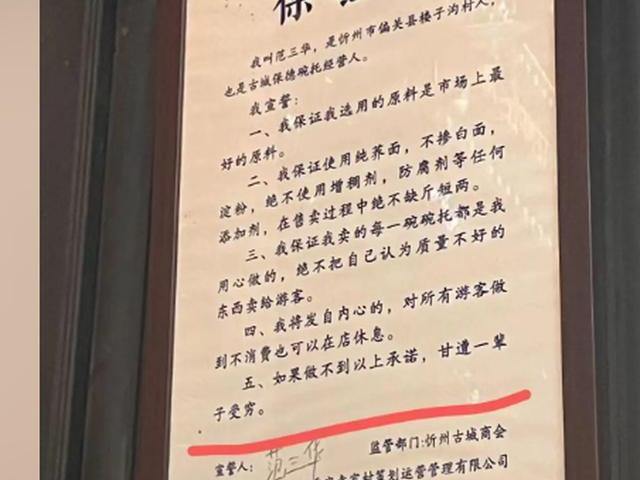 保
我叫范三华，是忻州市偏关县楼子沟村人，
也是古城保德碗托经营人。
我宣誓：
一、我保证我选用的原料是市场上最
好的原料。
二、我保证使用纯荞面，不掺白面，
淀粉，绝不使用增稠剂，防腐剂等任何
添加剂，在售卖过程中绝不缺斤短两。
三、我保证我卖的每一碗碗托都是我
用心做的，绝不把自己认为质量不好的
东西卖给游客。
四、我将发自内心的，对所有游客做
到不消费也可以在店休息。
五、如果做不到以上承诺，甘遭一辈
子受穷。
监管部门:忻州古城商会
宣誓人：范三华
村策划运营管理有限公司